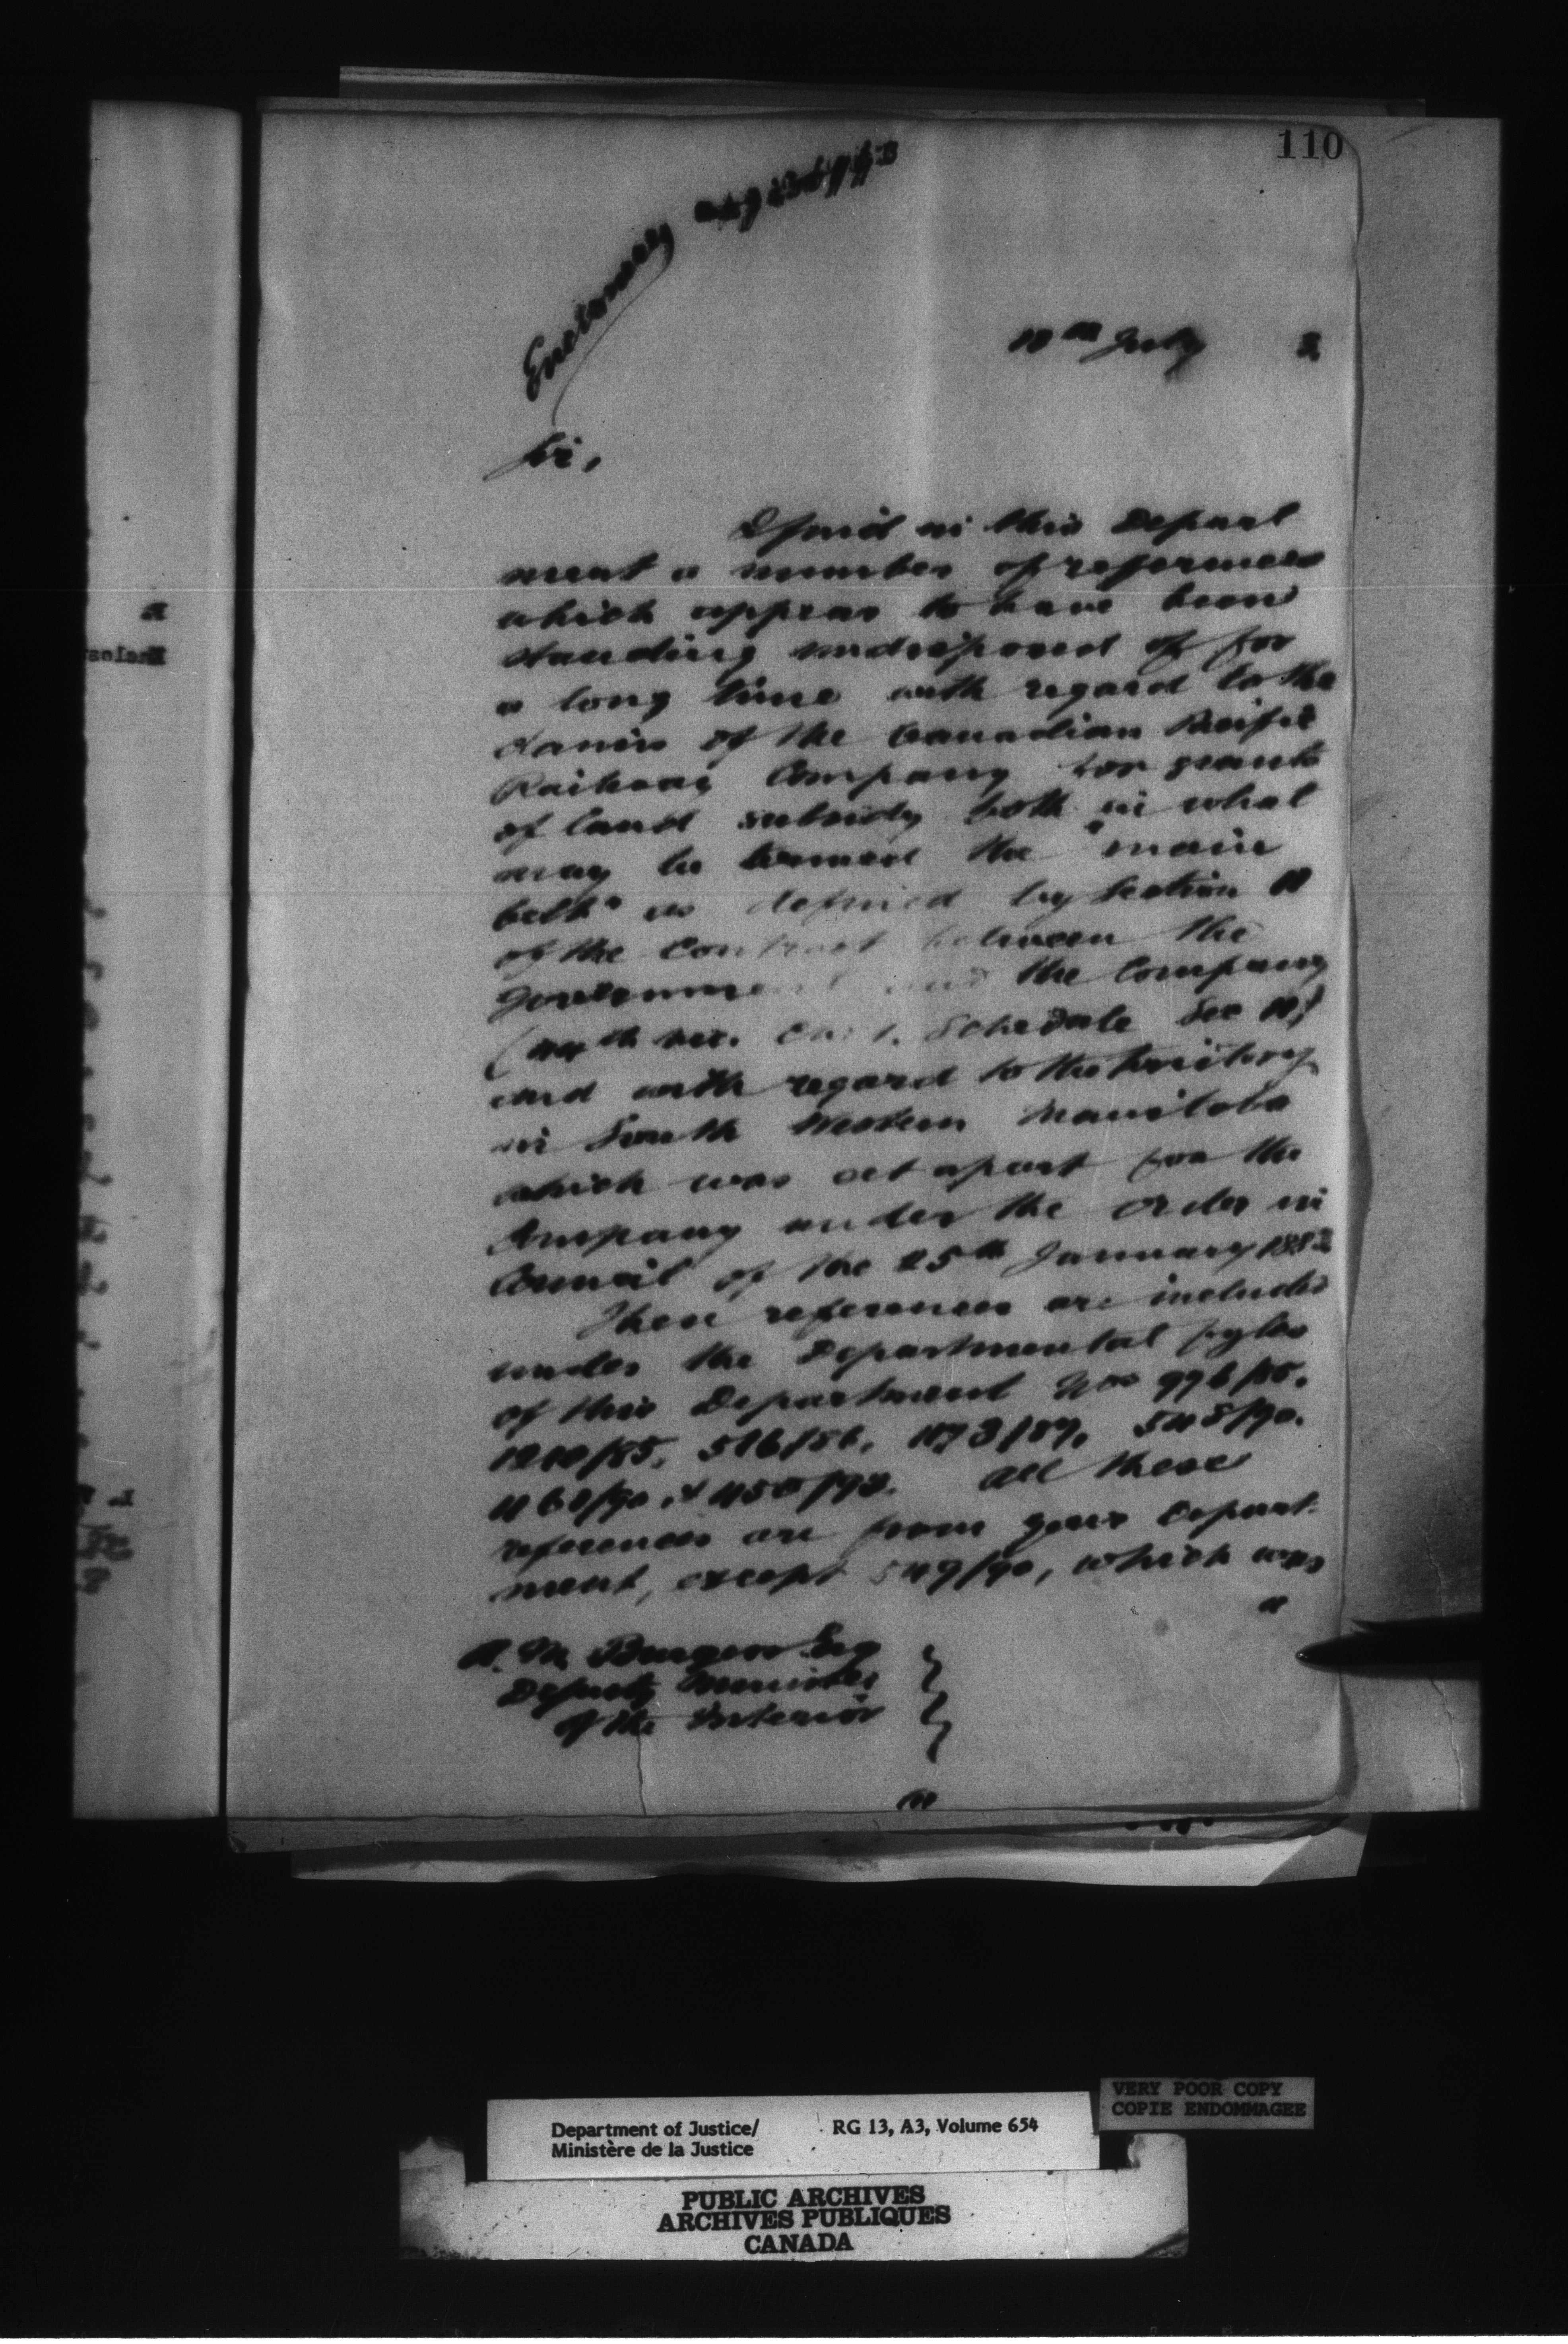 110
Enclosures
July 2
Sir,
I find in this Depart
ment a number of references
which appear to have been
standing undisposed of for
a long time with regard to the
claims of the Canadian Pacific
Railway Company for grants
of land subsidy both in what
may be termed the "main
belt" as defined by Section 11
of the Contract between the
Government and the Company
(44th Vic. Cap. 1. Schedule Sec 11)
and with regard to the territory
in South Western Manitoba
which was set apart for the
Company under the Order in
Council of the 25th January 1882
These references are included
under the Departmental fyles
of this Department Nos 996/85.
1210/85, 516/86, 1173/87,
All these
references are from your Depart-
ment, except 549/90, which was
A. M. Burgess Esq
Deputy Minister
of the Interior
VERY POOR COPY
COPIE ENDOMMAGEE
Department of Justice/ RG 13, A3, Volume 654
Ministère de la Justice
PUBLIC ARCHIVES
ARCHIVES PUBLIQUES
CANADA